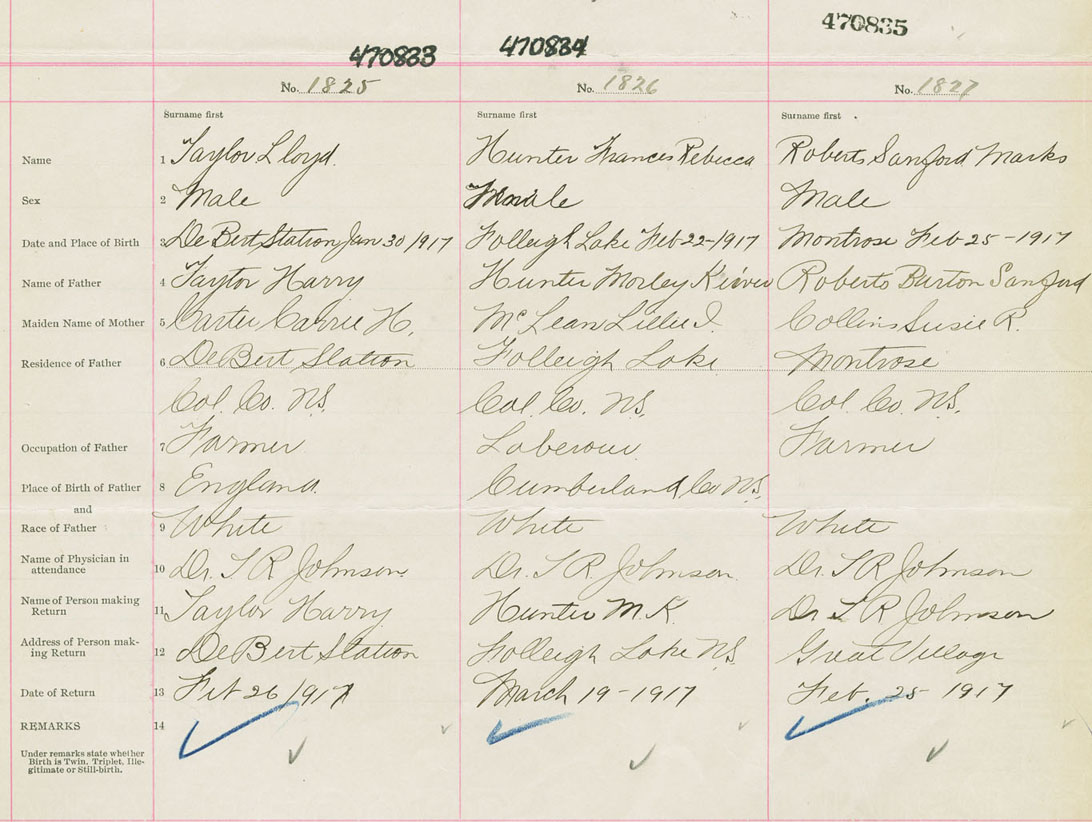 470833 470834 470835
No. 1825 No. 1826 No. 1827
Surname first Surname first Surname first
Name 1 Taylor Lloyd. Hunter Frances Rebecca Roberts Sanford Marks
Sex 2 Male Male
Date and Place of Birth 3 DeBert Station Jan 30/1917 Folleigh Lake Feb-22-1917 Montrose Feb 25-1917
Name of Father 4 Taylor Harry Hunter Morley Roberts Burton Sanford
Maiden Name of Mother 5 Carter Carrie H. McLean Lillie I. Collins Susie R.
Residence of Father 6 DeBert Station Folleigh Lake Montrose
Col. Co. N.S. Col. Co. N.S. Col. Co. N.S.
Occupation of Father 7 Farmer Laberour Farmer
Place of Birth of Father 8 England. Cumberland Co N.S.
and
Race of Father 9 White White White
Name of Physician in
attendance 10 Dr. T R Johnson. Dr. T R. Johnson. Dr. T R Johnson
Name of Person making
Return 11 Taylor Harry Hunter M. K. Dr T R Johnson
Address of Person mak-
ing Return 12 DeBert Station Folleigh Lake NS Great Village
Date of Return 13 Feb 26/1917 March 19-1917 Feb. 25 1917
REMARKS 14
Under remarks state whether
Birth is Twin, Triplet, Ille-
gitimate or Still-birth.